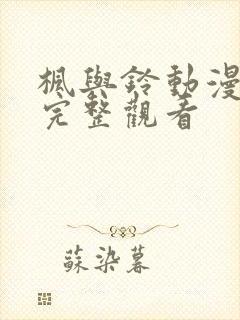 楓與鈴動漫
完整觀看
蘇染暮